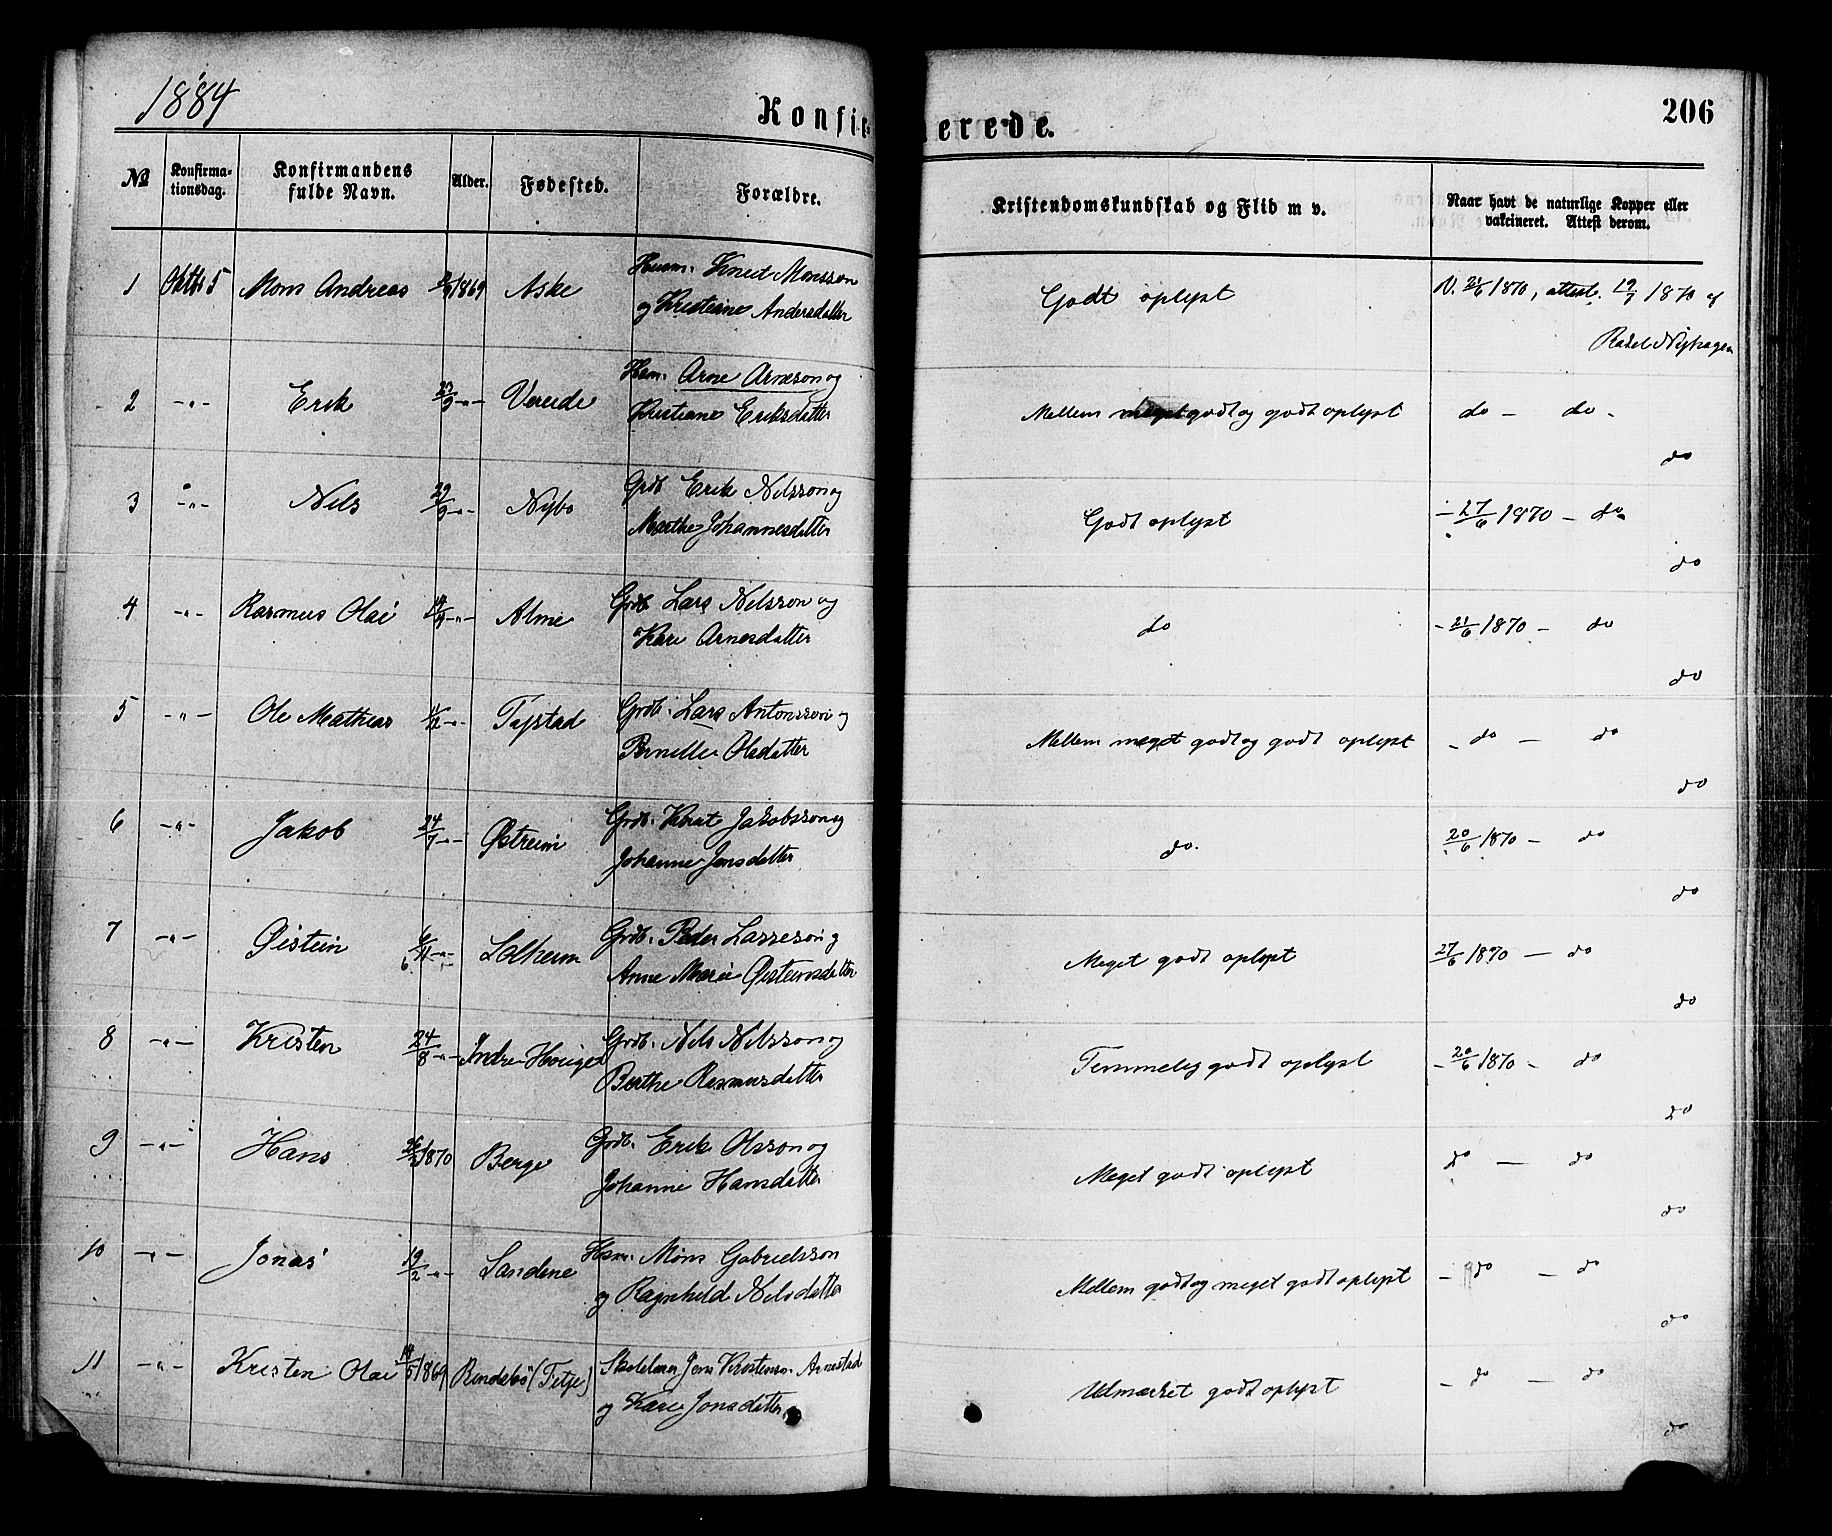 1884
Konfirmerede.
206
No
Konfirmationsdag.
Konfirmandens fulde Navn.
Alder.
Fødested.
Forældre.
Kristendomskundskab og Flid m v.
Naar havt de naturlige Kopper eller vakcineret. Attest derom.
1 Oktbr 5 Mons Andreas 1869 Aske Husm. Knut Monsson
og Kristiane Andersdatter
Godt oplyst
V. 21/6 1870, attest. 19/7 1870 af
Rasel Nyhagen
2 -"- Erik 23/9 -"- Vereide Hsm. Arne Arneson og
Kristiane Eriksdatter
Mellem meget godt og godt oplyst do - do -
do
3 -"- Nels 29/9 -"- Nybø Grdb Erik Nelsson og
Marthe Johannesdatter
Godt oplyst - 27/6 1870 - do
do
4 -"- Rasmus Olai -"- Alme Grdb Lars Nelsson og
Kari Arnesdatter
do - 21/6 1870 - do
do
5 -"- Ole Mathias -"- Tystad Grdb. Lars Antonsson og
Pernille Olsdatter
Mellem meget godt og godt oplyst - do - do
do
6 -"- Jakob 24/7 -"- Østreim Grdb. Knut Jakobsson og
Johanne Jonsdatter
do. 20/6 1870 - do
do
7 -"- Øistein 6/11 -"- Solheim Grdb. Peder Lasseson og
Anne Marie Øisteinsdatter
Meget godt oplyst 27/6 1870 - do
do
8 -"- Kristen 24/8 -"- Indre Hauge Grdb. Nels Nelsson og
Berthe Rasmusdatter
Temmelig godt oplyst - 20/6 1870 - do
do
9 -"- Hans 1870 Berge Grdb. Erik Olsson og
Johanne Hansdatter
Meget godt oplyst do - do
do
10 -"- Jonas 19/2 -"- Sandene Hsm. Mons Gabrielsson
og Ragnhild Nelsdatter
Mellem godt og meget godt oplyst - do - do
do
11 -"- Kristen Olai 14/5 1869 Rendebø (Fitje) Skolelærer Jens Kristenss. Arnestad
og Kari Jonsdatter
Udmærket godt oplyst - do - do
do